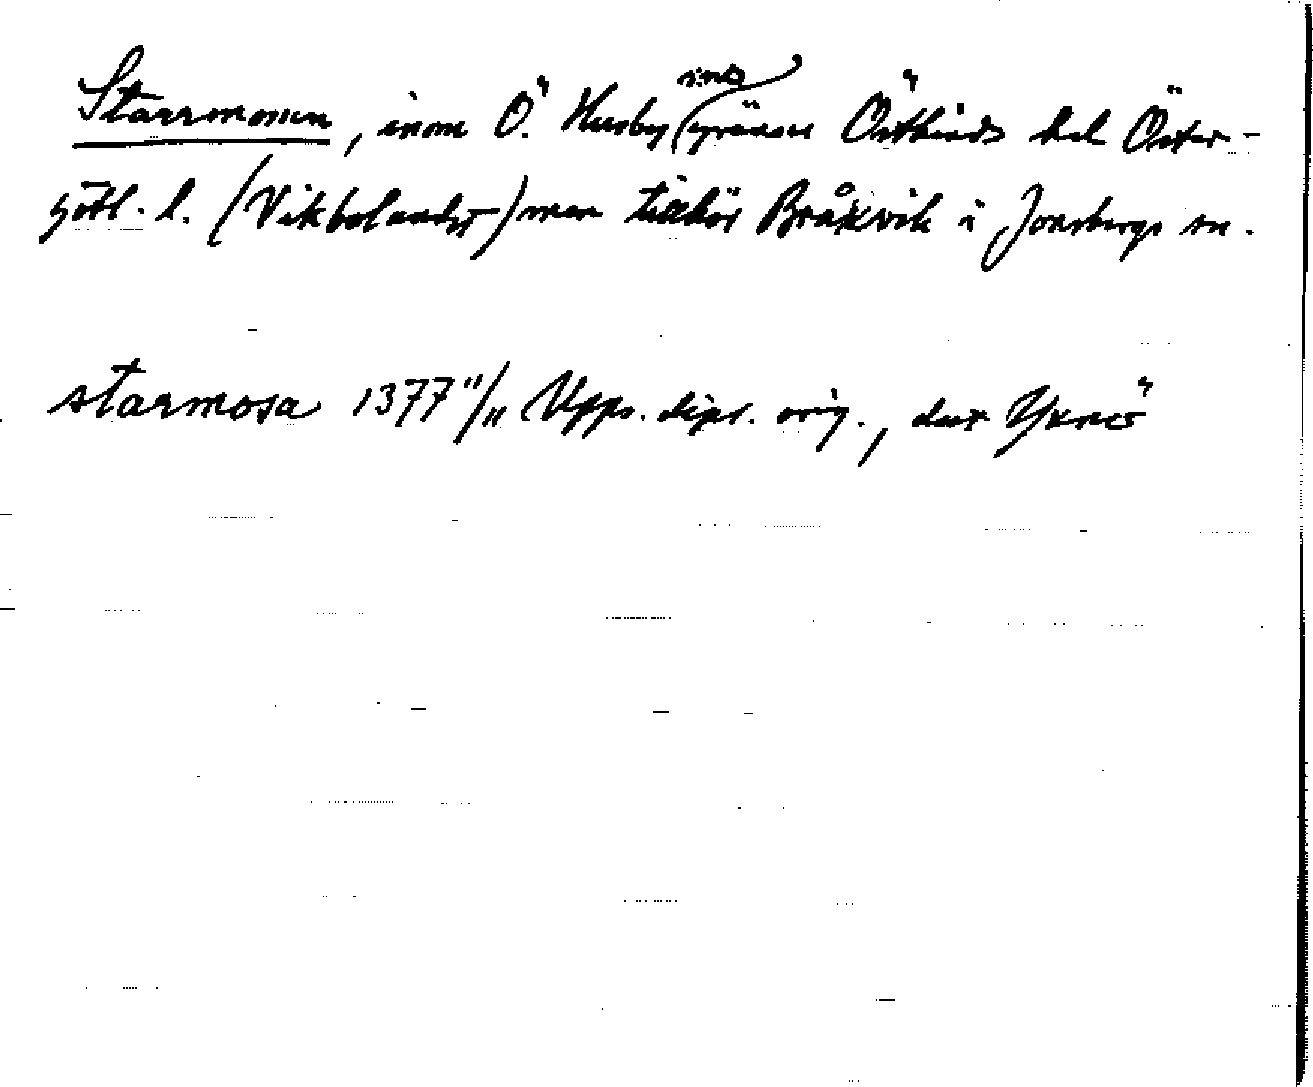 Starrmossen, inom Ö. Husby sns gränser Östkinds hd Öster-
götl. l. (Vikbolandet) men tillhör Bråxvik i Jonsbergs sn.
starmosa 1377 11/11 Upps. dipl. orig., dat Yxnö